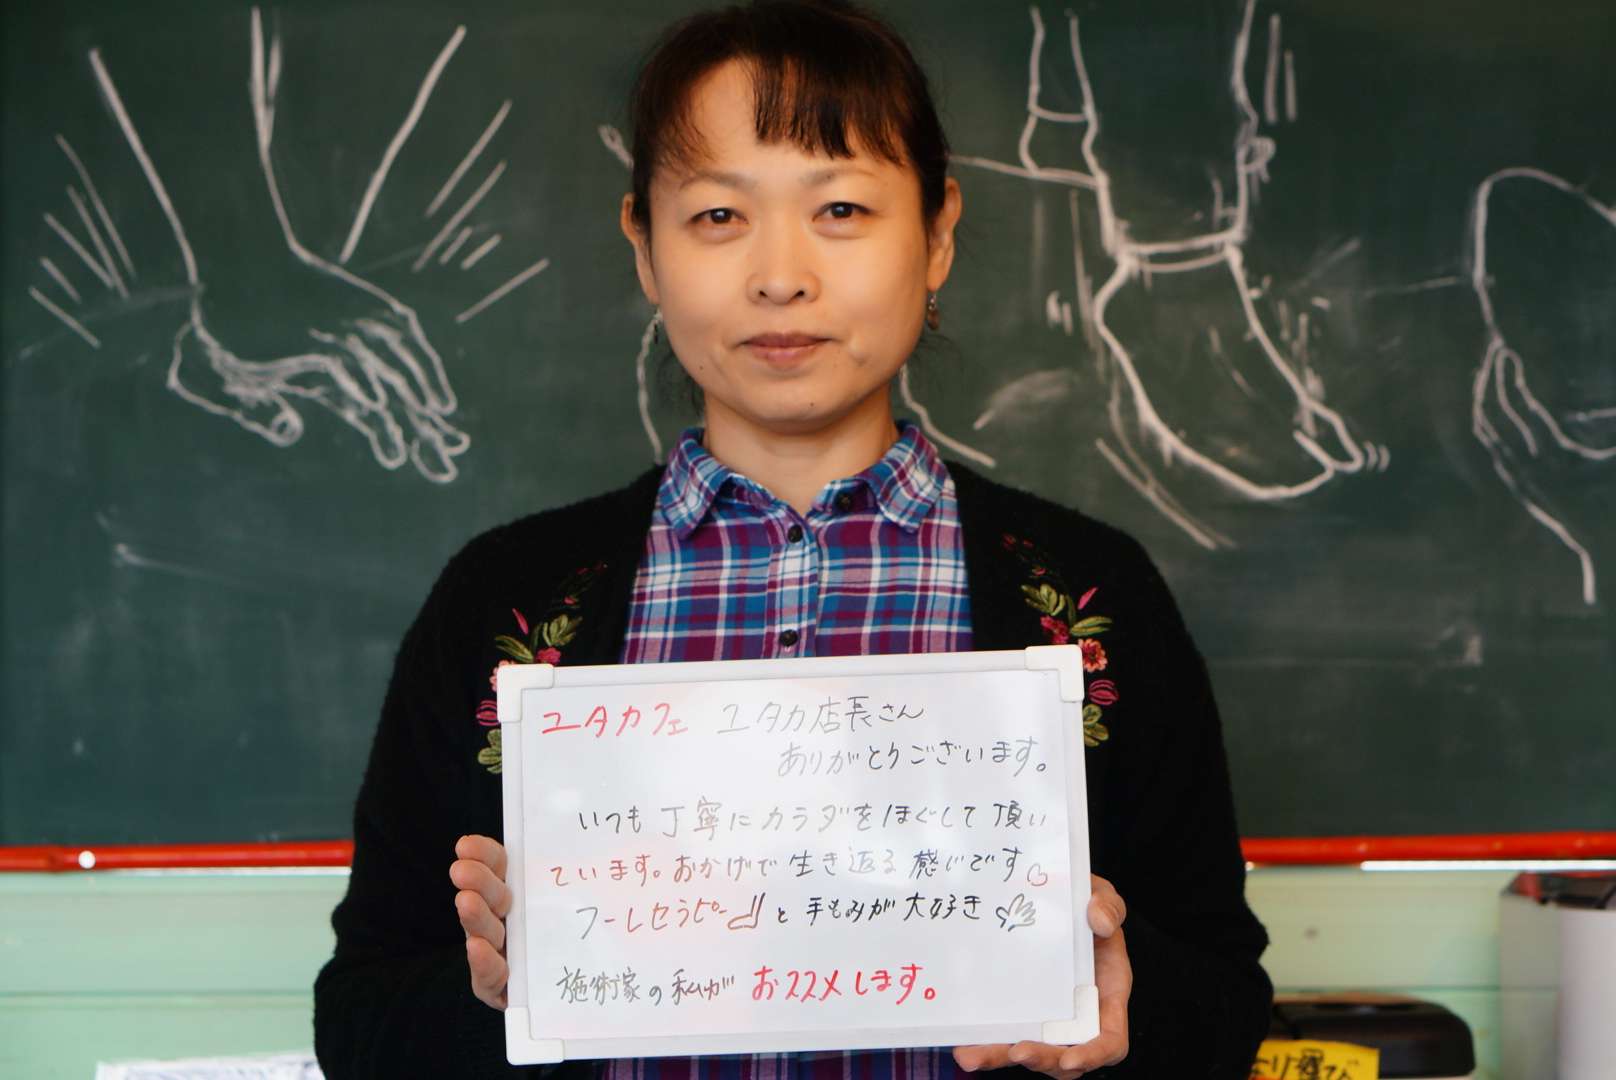 ユタカフェ ユタカ店長さん
ありがとうございます。
いつも丁寧にカラダをほぐして頂い
ています。おかげで生き返る感じです
フーレセラピーと手もみが大好き
施術家の私がおススメします。